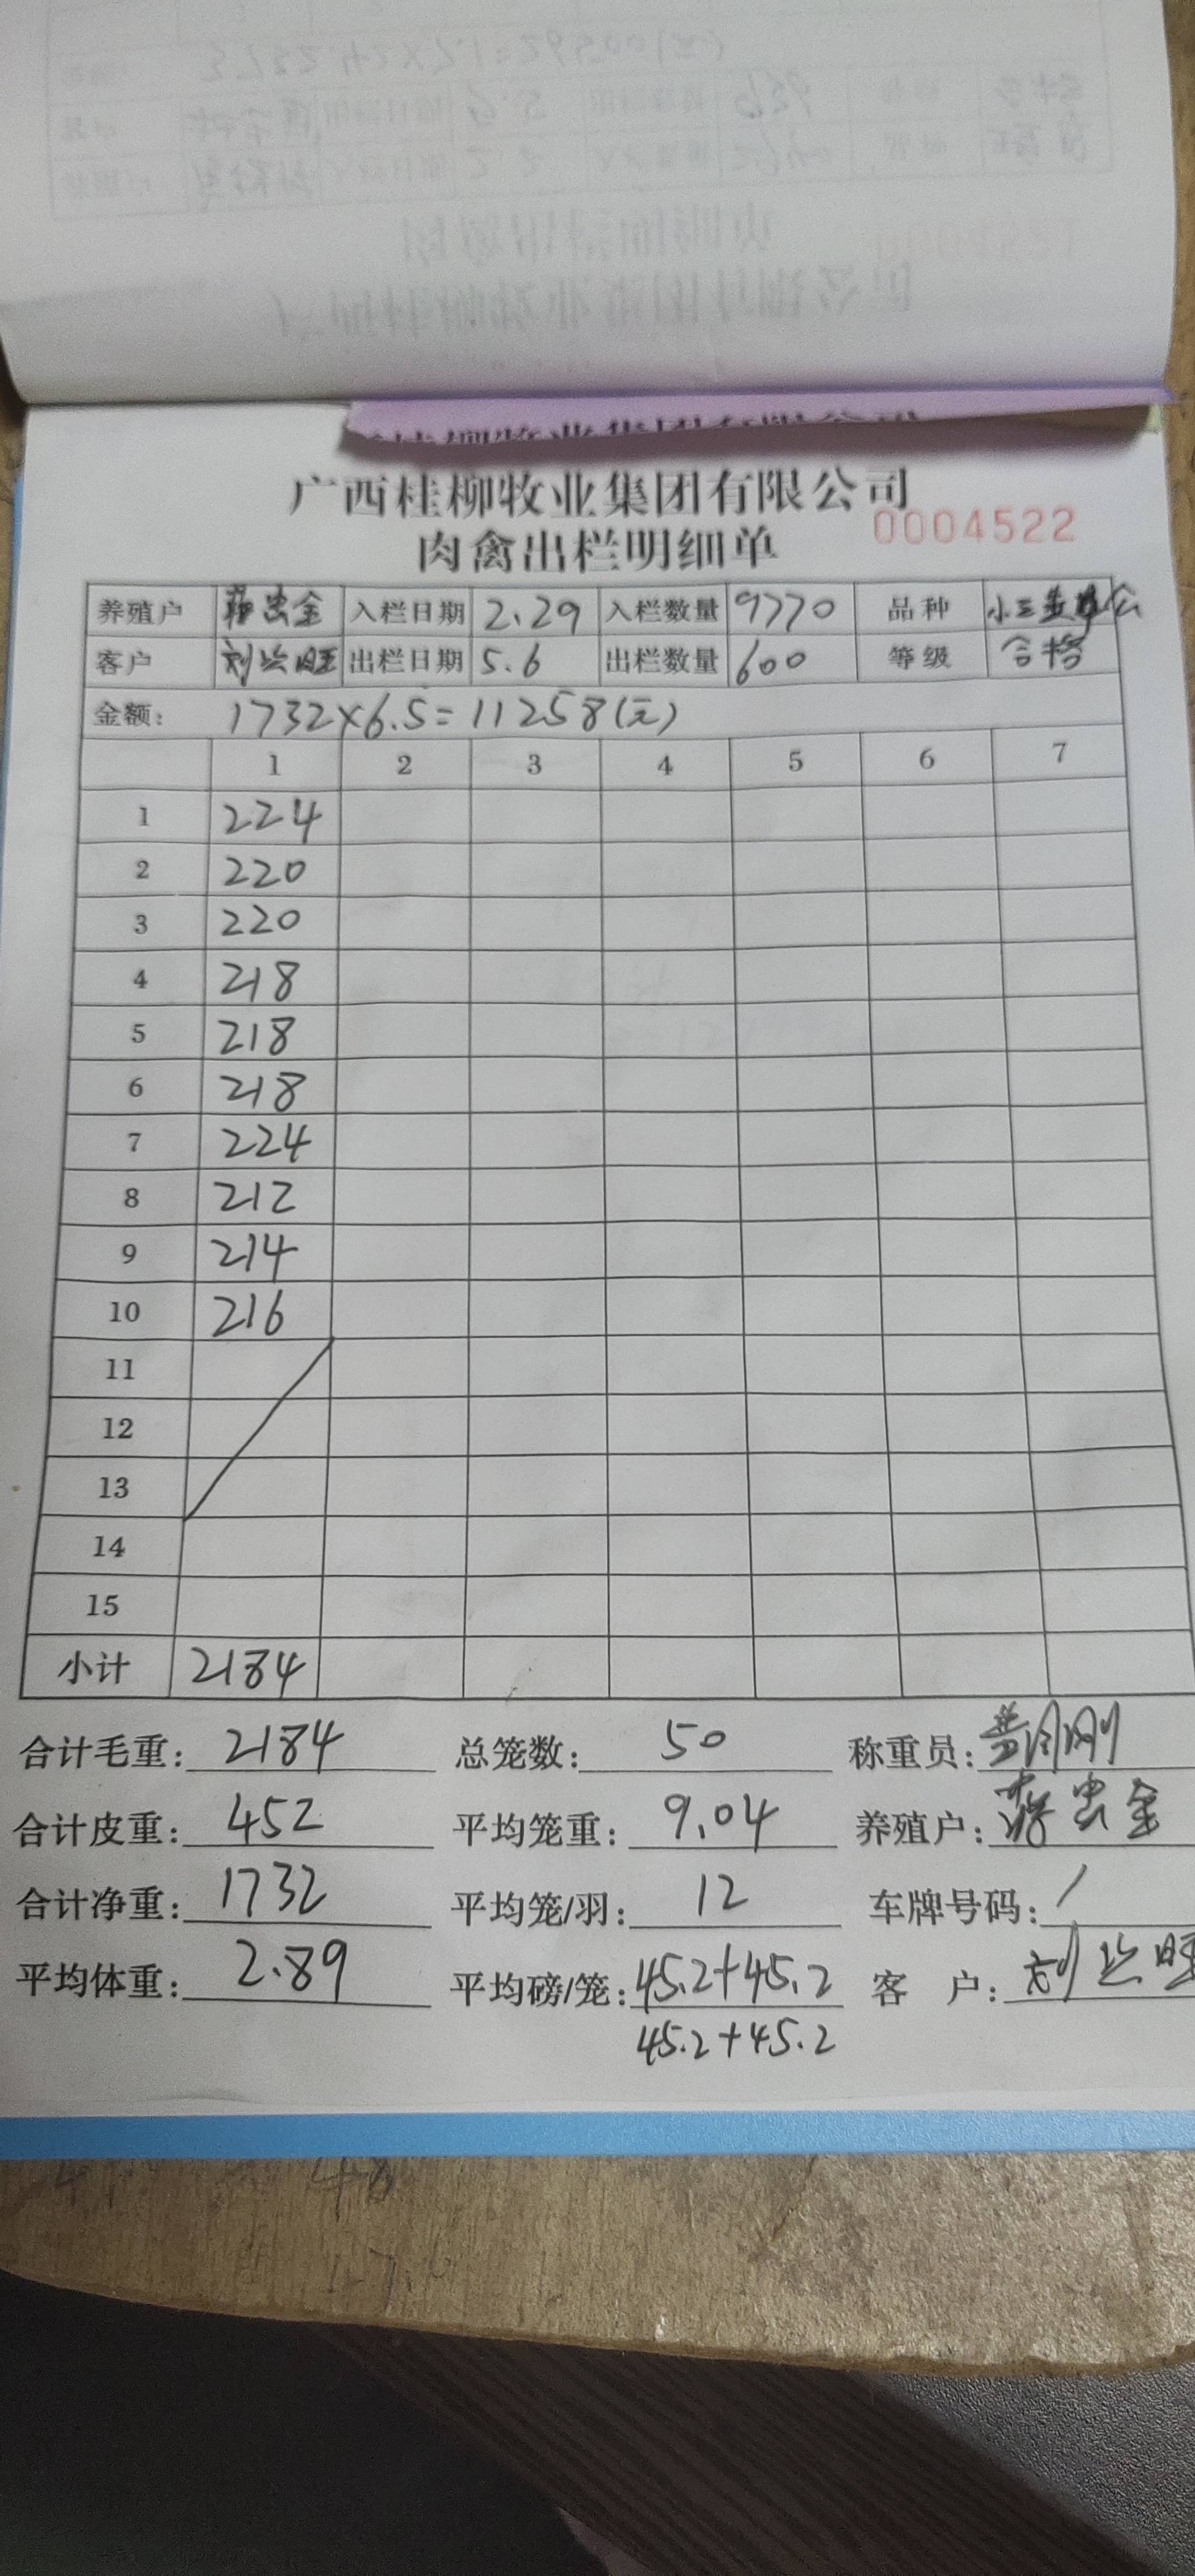 广西桂柳牧业集团有限公司
肉禽出栏明细单 0004522
养殖户 忠金 入栏日期 2.29 入栏数量 9770 品种 小三黄 公
客户 刘兴旺 出栏日期 5.6 出栏数量 600 等级 合格
金额: 1732×6.5=11258(元)
1 2 3 4 5 6 7
1 224
2 220
3 220
4 218
5 218
6 218
7 224
8 212
9 214
10 216
11
12
13
14
15
小计 2184
合计毛重: 2184 总笼数: 50 称重员:
合计皮重: 452 平均笼重: 9.04 养殖户: 忠金
合计净重: 1732 平均笼/羽: 12 车牌号码: /
平均体重: 2.89 平均磅/笼: 45.2+45.2 客 户: 刘兴旺
45.2+45.2